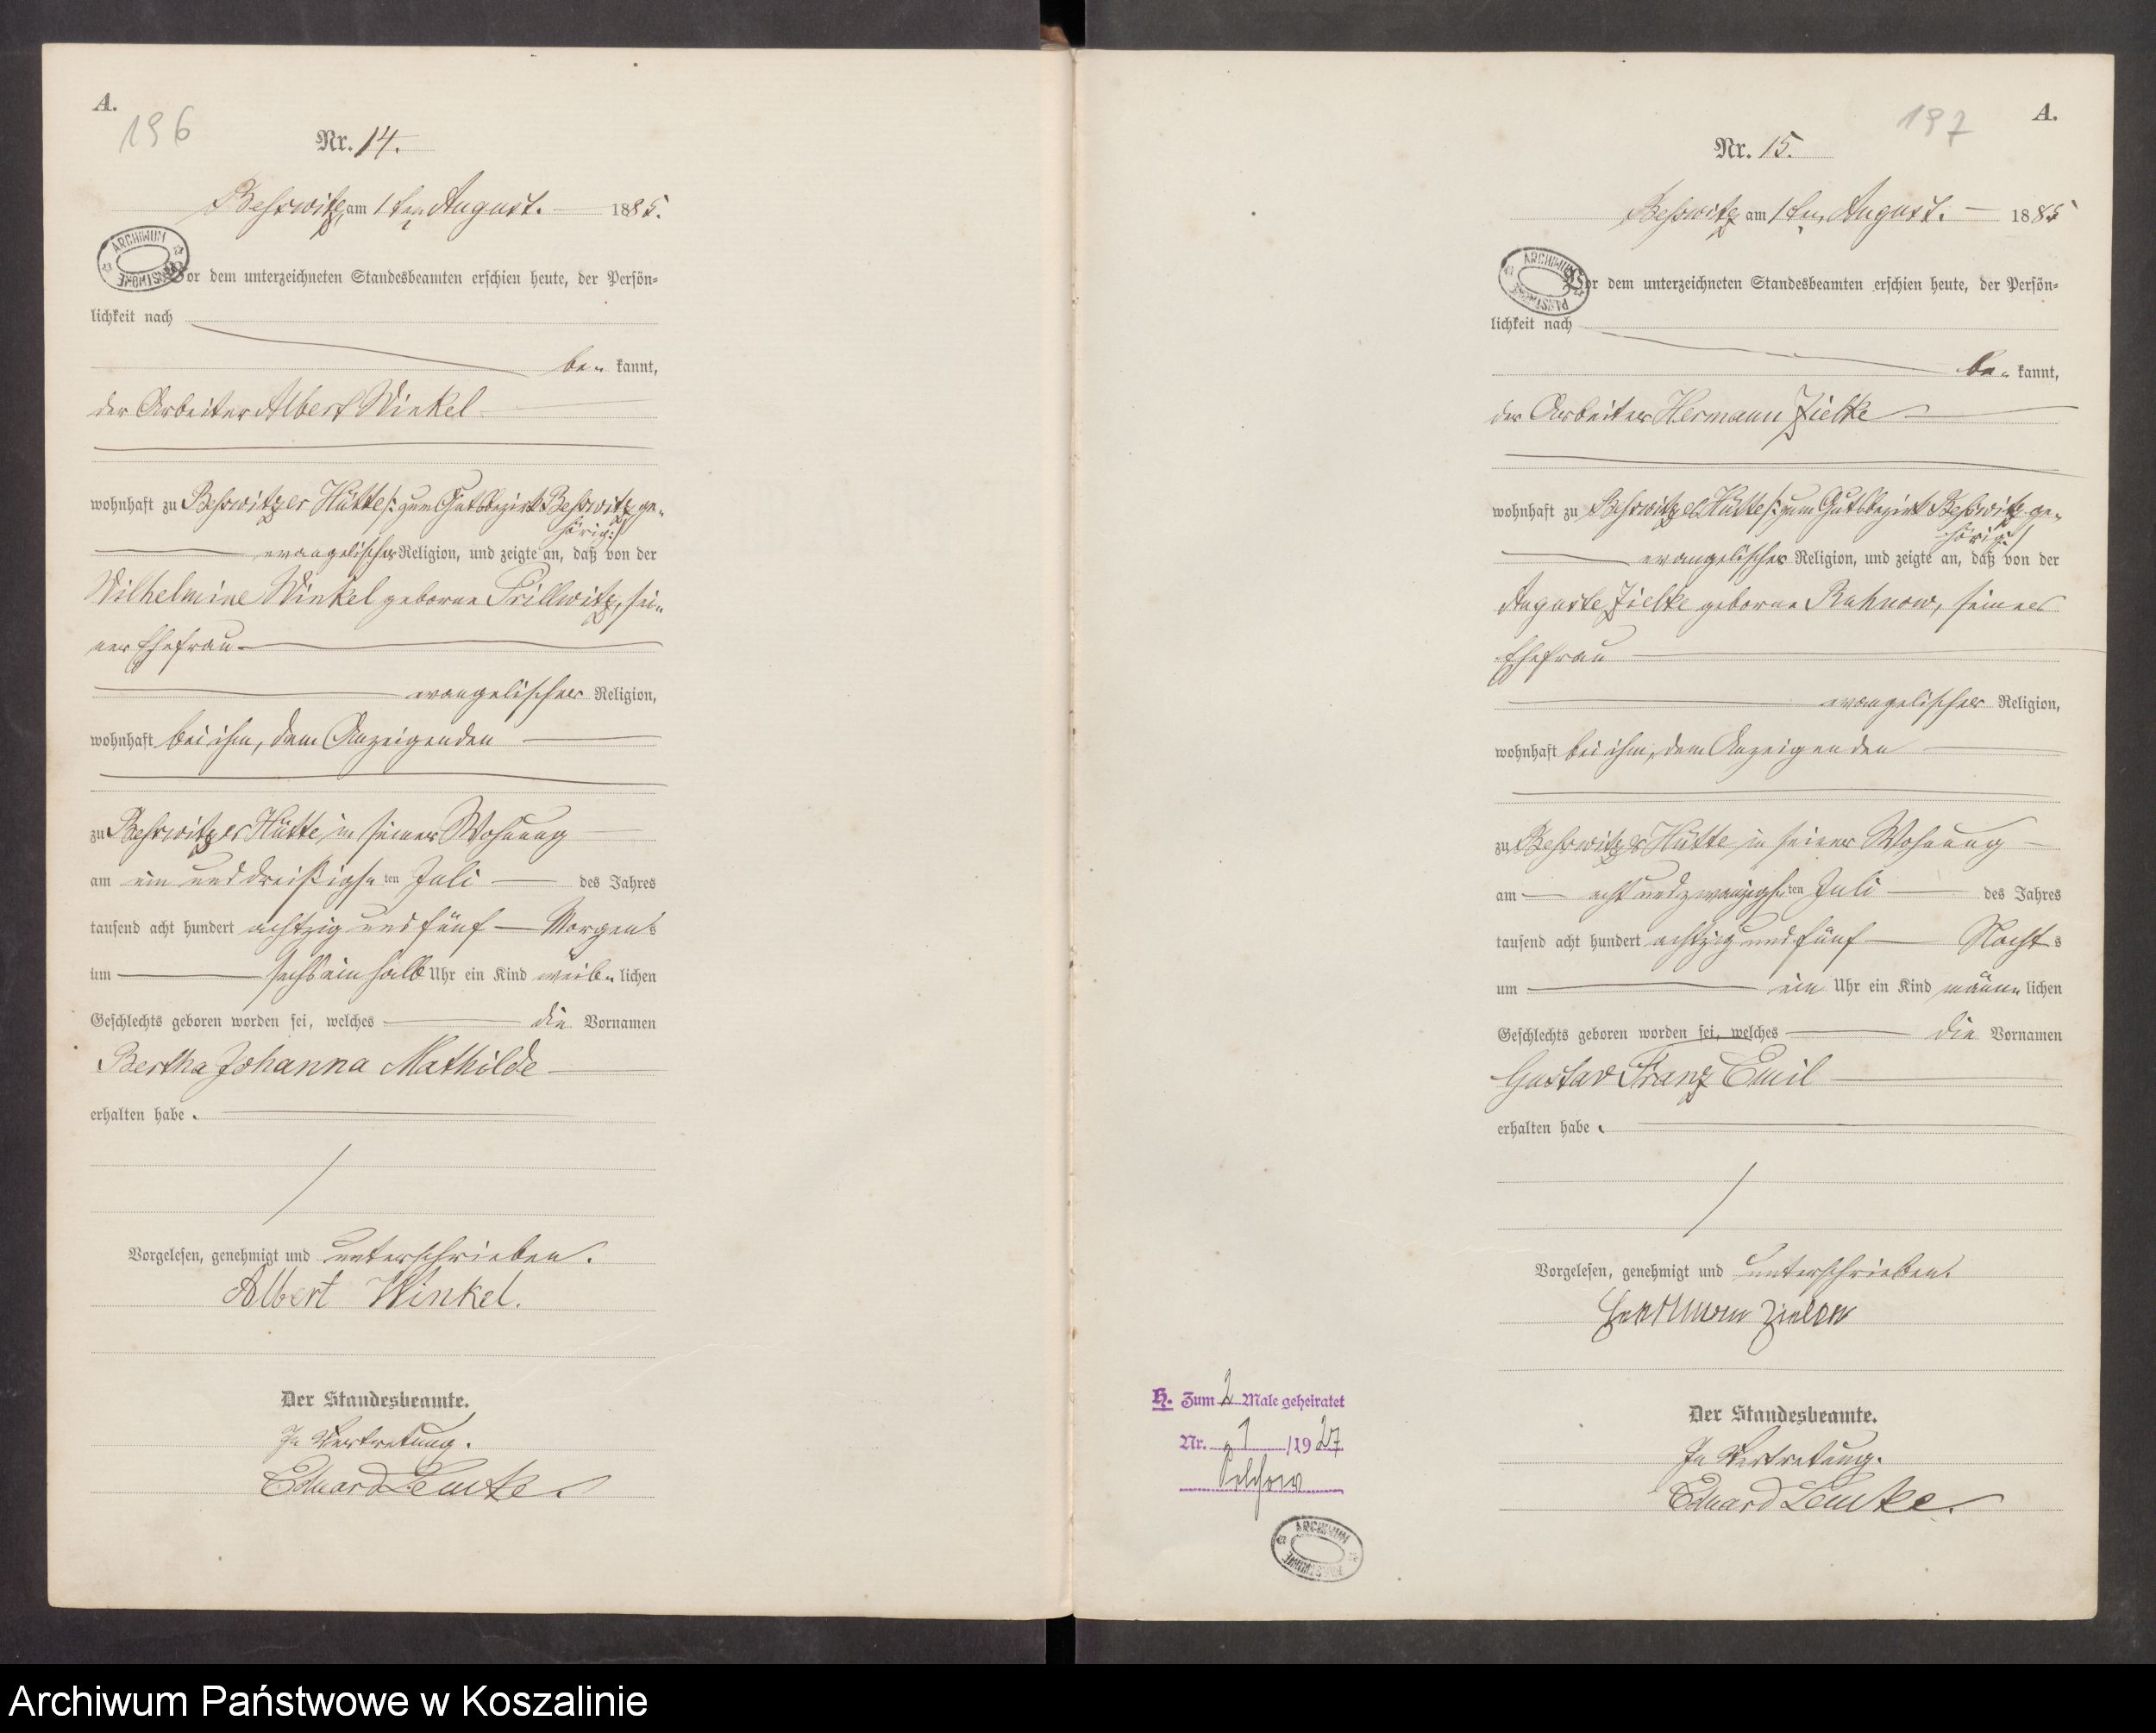 A.
196
Nr. 14.
Beßwitz, am 1ten August. 1885.
ARCHIWUM PAŃSTWOWE
Vor dem unterzeichneten Standesbeamten erschien heute, der Persön-
lichkeit nach
be- kannt,
der Arbeiter Albert Winkel
wohnhaft zu Beßwitzer Hütte /: zum Gutsbezirk Beßwitz ge-
hörig :/
evangelischer Religion, und zeigte an, daß von der
Wilhelmine Winkel geborne Prillwitz, sei-
ner Ehefrau
evangelischer Religion,
wohnhaft bei ihm, dem Anzeigenden
zu Beßwitzer Hütte in seiner Wohnung
am ein und dreißigsten Juli des Jahres
tausend acht hundert achtzig und fünf Morgens
um sechs ein halb Uhr ein Kind weib- lichen
Geschlechts geboren worden sei, welches die Vornamen
Bertha Johanna Mathilde
erhalten habe.
Vorgelesen, genehmigt und unterschrieben.
Albert Winkel.
Der Standesbeamte.
In Vertretung.
Eduard Lemke.
197
A.
Nr. 15.
Beßwitz am 1ten August. 1885
ARCHIWUM PAŃSTWOWE
Vor dem unterzeichneten Standesbeamten erschien heute, der Persön-
lichkeit nach
be- kannt,
der Arbeiter Hermann Zielke
wohnhaft zu Beßwitzer Hütte /: zum Gutsbezirk Beßwitz ge-
hörig :/
evangelischer Religion, und zeigte an, daß von der
Auguste Zielke geborne Rahnow, seiner
Ehefrau
evangelischer Religion,
wohnhaft bei ihm, dem Anzeigenden
zu Beßwitzer Hütte in seiner Wohnung
am acht und zwanzigsten Juli des Jahres
tausend acht hundert achtzig und fünf Nachts
um ein Uhr ein Kind männ- lichen
Geschlechts geboren worden sei, welches die Vornamen
Gustav Franz Emil
erhalten habe.
Vorgelesen, genehmigt und unterschrieben.
Herrmann Zielke
Der Standesbeamte.
In Vertretung.
Eduard Lemke.
H. Zum 2 Male geheiratet
Nr. 1 /1927
ARCHIWUM PAŃSTWOWE
Archiwum Państwowe w Koszalinie